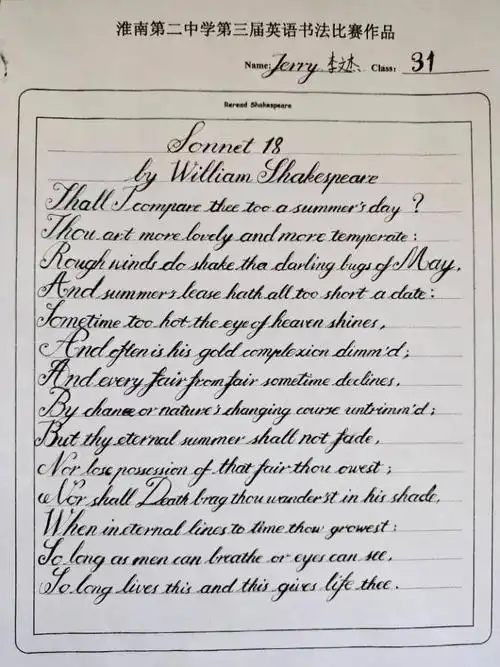 淮南第二中学第三届英语书法比赛作品
Name: Jerry 李文杰 Class: 31
Reread Shakespeare
Sonnet 18
by William Shakespeare
Shall I compare thee too a summer's day ?
Thou art more lovely and more temperate :
Rough winds do shake tha darling bugs of May,
And summer's lease hath all too short a date :
Sometime too hot the eye of heaven shines,
And often is his gold complexion dimm'd ;
And every fair from fair sometime declines,
By chance or nature's changing course untrimm'd ;
But thy eternal summer shall not fade,
Nor lose possession of that fair thou owest ;
Nor shall Death brag thou wander'st in his shade,
When in eternal lines to time thou growest :
So long as men can breathe or eyes can see,
So long lives this and this gives life thee .